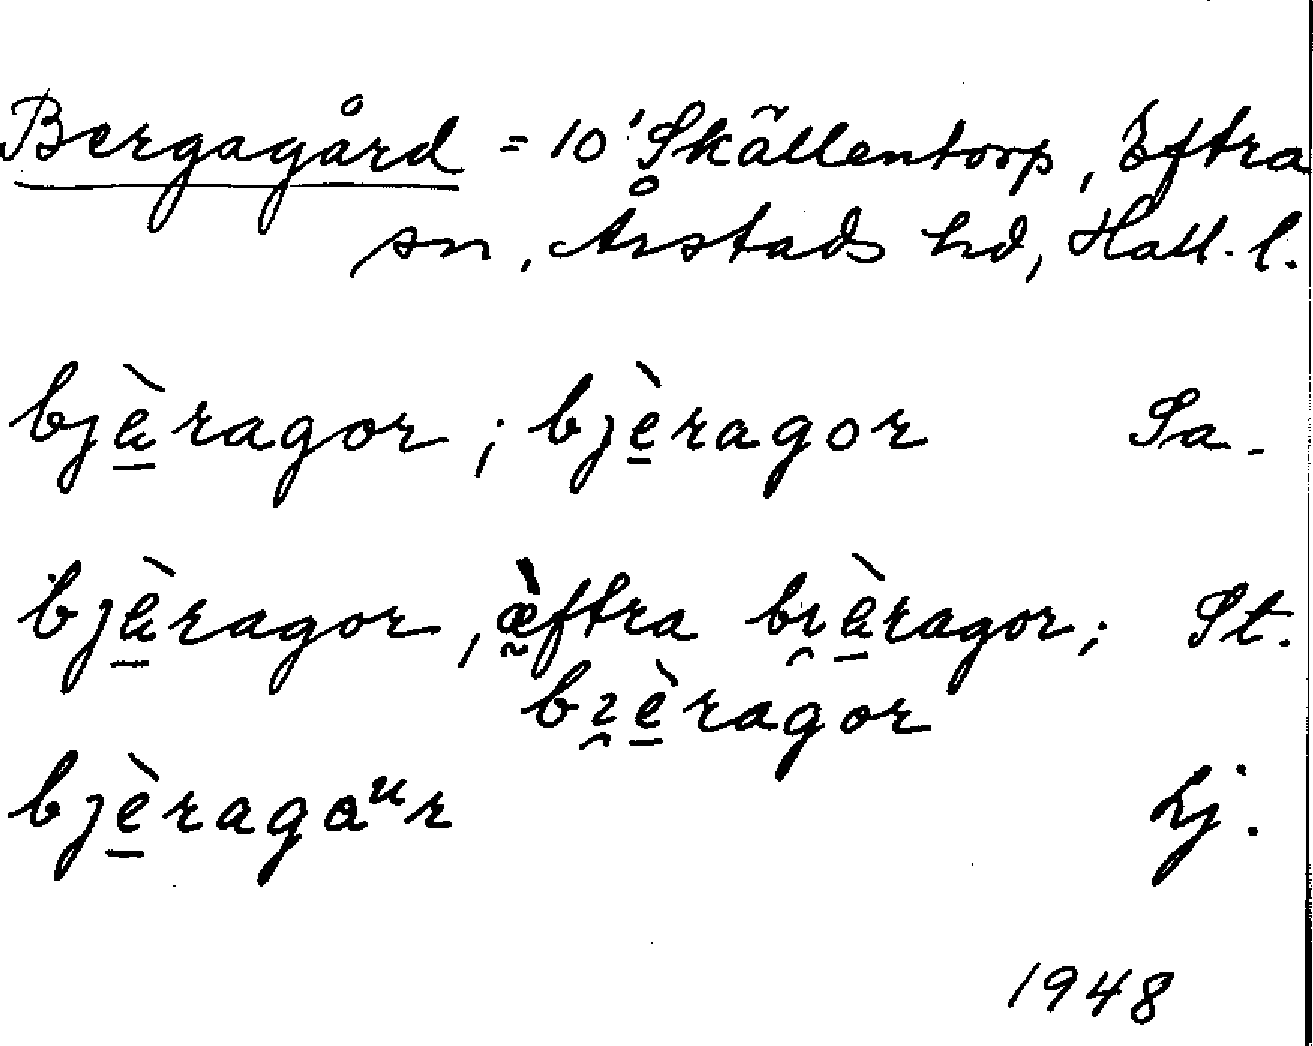 Bergagård = 10' Skällentorp, Eftra
sn, Årstads hd, Hall. l.
bjæ̠̀ragor ; bjè̠ragor Sa.
bjæ̠̀ragor, æ̰̀ftra bı̯æ̠̀ragor; St.
bı̯è̠ragor
bjè̠ragaᵘr Lj.
1948